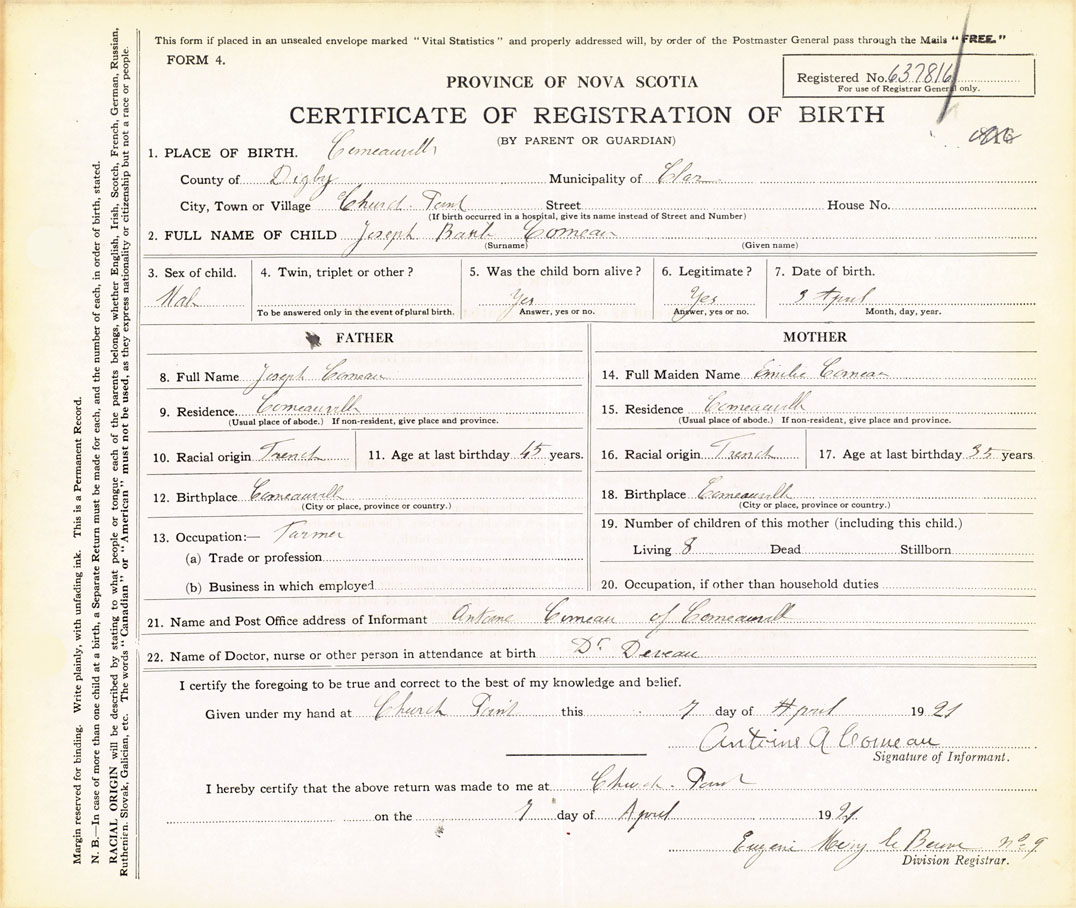 This form if placed in an unsealed envelope marked "Vital Statistics" and properly addressed will, by order of the Postmaster General pass through the Mails "FREE."
FORM 4.
Registered No. 637816
For use of Registrar General only.
PROVINCE OF NOVA SCOTIA
CERTIFICATE OF REGISTRATION OF BIRTH
(BY PARENT OR GUARDIAN)
1. PLACE OF BIRTH. Comeauville
County of Digby Municipality of Clare
City, Town or Village Church Point Street House No.
(If birth occurred in a hospital, give its name instead of Street and Number)
2. FULL NAME OF CHILD Joseph Comeau
(Surname) (Given name)
3. Sex of child. 4. Twin, triplet or other? 5. Was the child born alive? 6. Legitimate? 7. Date of birth.
Male Yes Yes 3 April
To be answered only in the event of plural birth. Answer, yes or no. Answer, yes or no. Month, day, year.
FATHER
8. Full Name Joseph Comeau
9. Residence. Comeauville
(Usual place of abode.) If non-resident, give place and province.
10. Racial origin French 11. Age at last birthday 45 years.
12. Birthplace Comeauville
(City or place, province or country.)
13. Occupation:— Farmer
(a) Trade or profession
(b) Business in which employed
MOTHER
14. Full Maiden Name Emilie Comeau
15. Residence Comeauville
(Usual place of abode.) If non-resident, give place and province.
16. Racial origin French 17. Age at last birthday 35 years
18. Birthplace Comeauville
(City or place, province or country.)
19. Number of children of this mother (including this child.)
Living 8 Dead Stillborn
20. Occupation, if other than household duties
21. Name and Post Office address of Informant Antoine Comeau of Comeauville
22. Name of Doctor, nurse or other person in attendance at birth Dr Deveau
I certify the foregoing to be true and correct to the best of my knowledge and belief.
Given under my hand at Church Point this 7 day of April 1921
Antoine A Comeau
Signature of Informant.
I hereby certify that the above return was made to me at Church Point
on the 7 day of April 1921
Eugene
Division Registrar.
Margin reserved for binding. Write plainly, with unfading ink. This is a Permanent Record.
N. B.—In case of more than one child at a birth, a Separate Return must be made for each, and the number of each, in order of birth, stated.
RACIAL ORIGIN will be described by stating to what people or tongue each of the parents belongs, whether English, Irish, Scotch, French, German, Russian,
Ruthenien, Slovak, Galician, etc. The words "Canadian" or "American" must not be used, as they express nationality or citizenship but not a race or people.